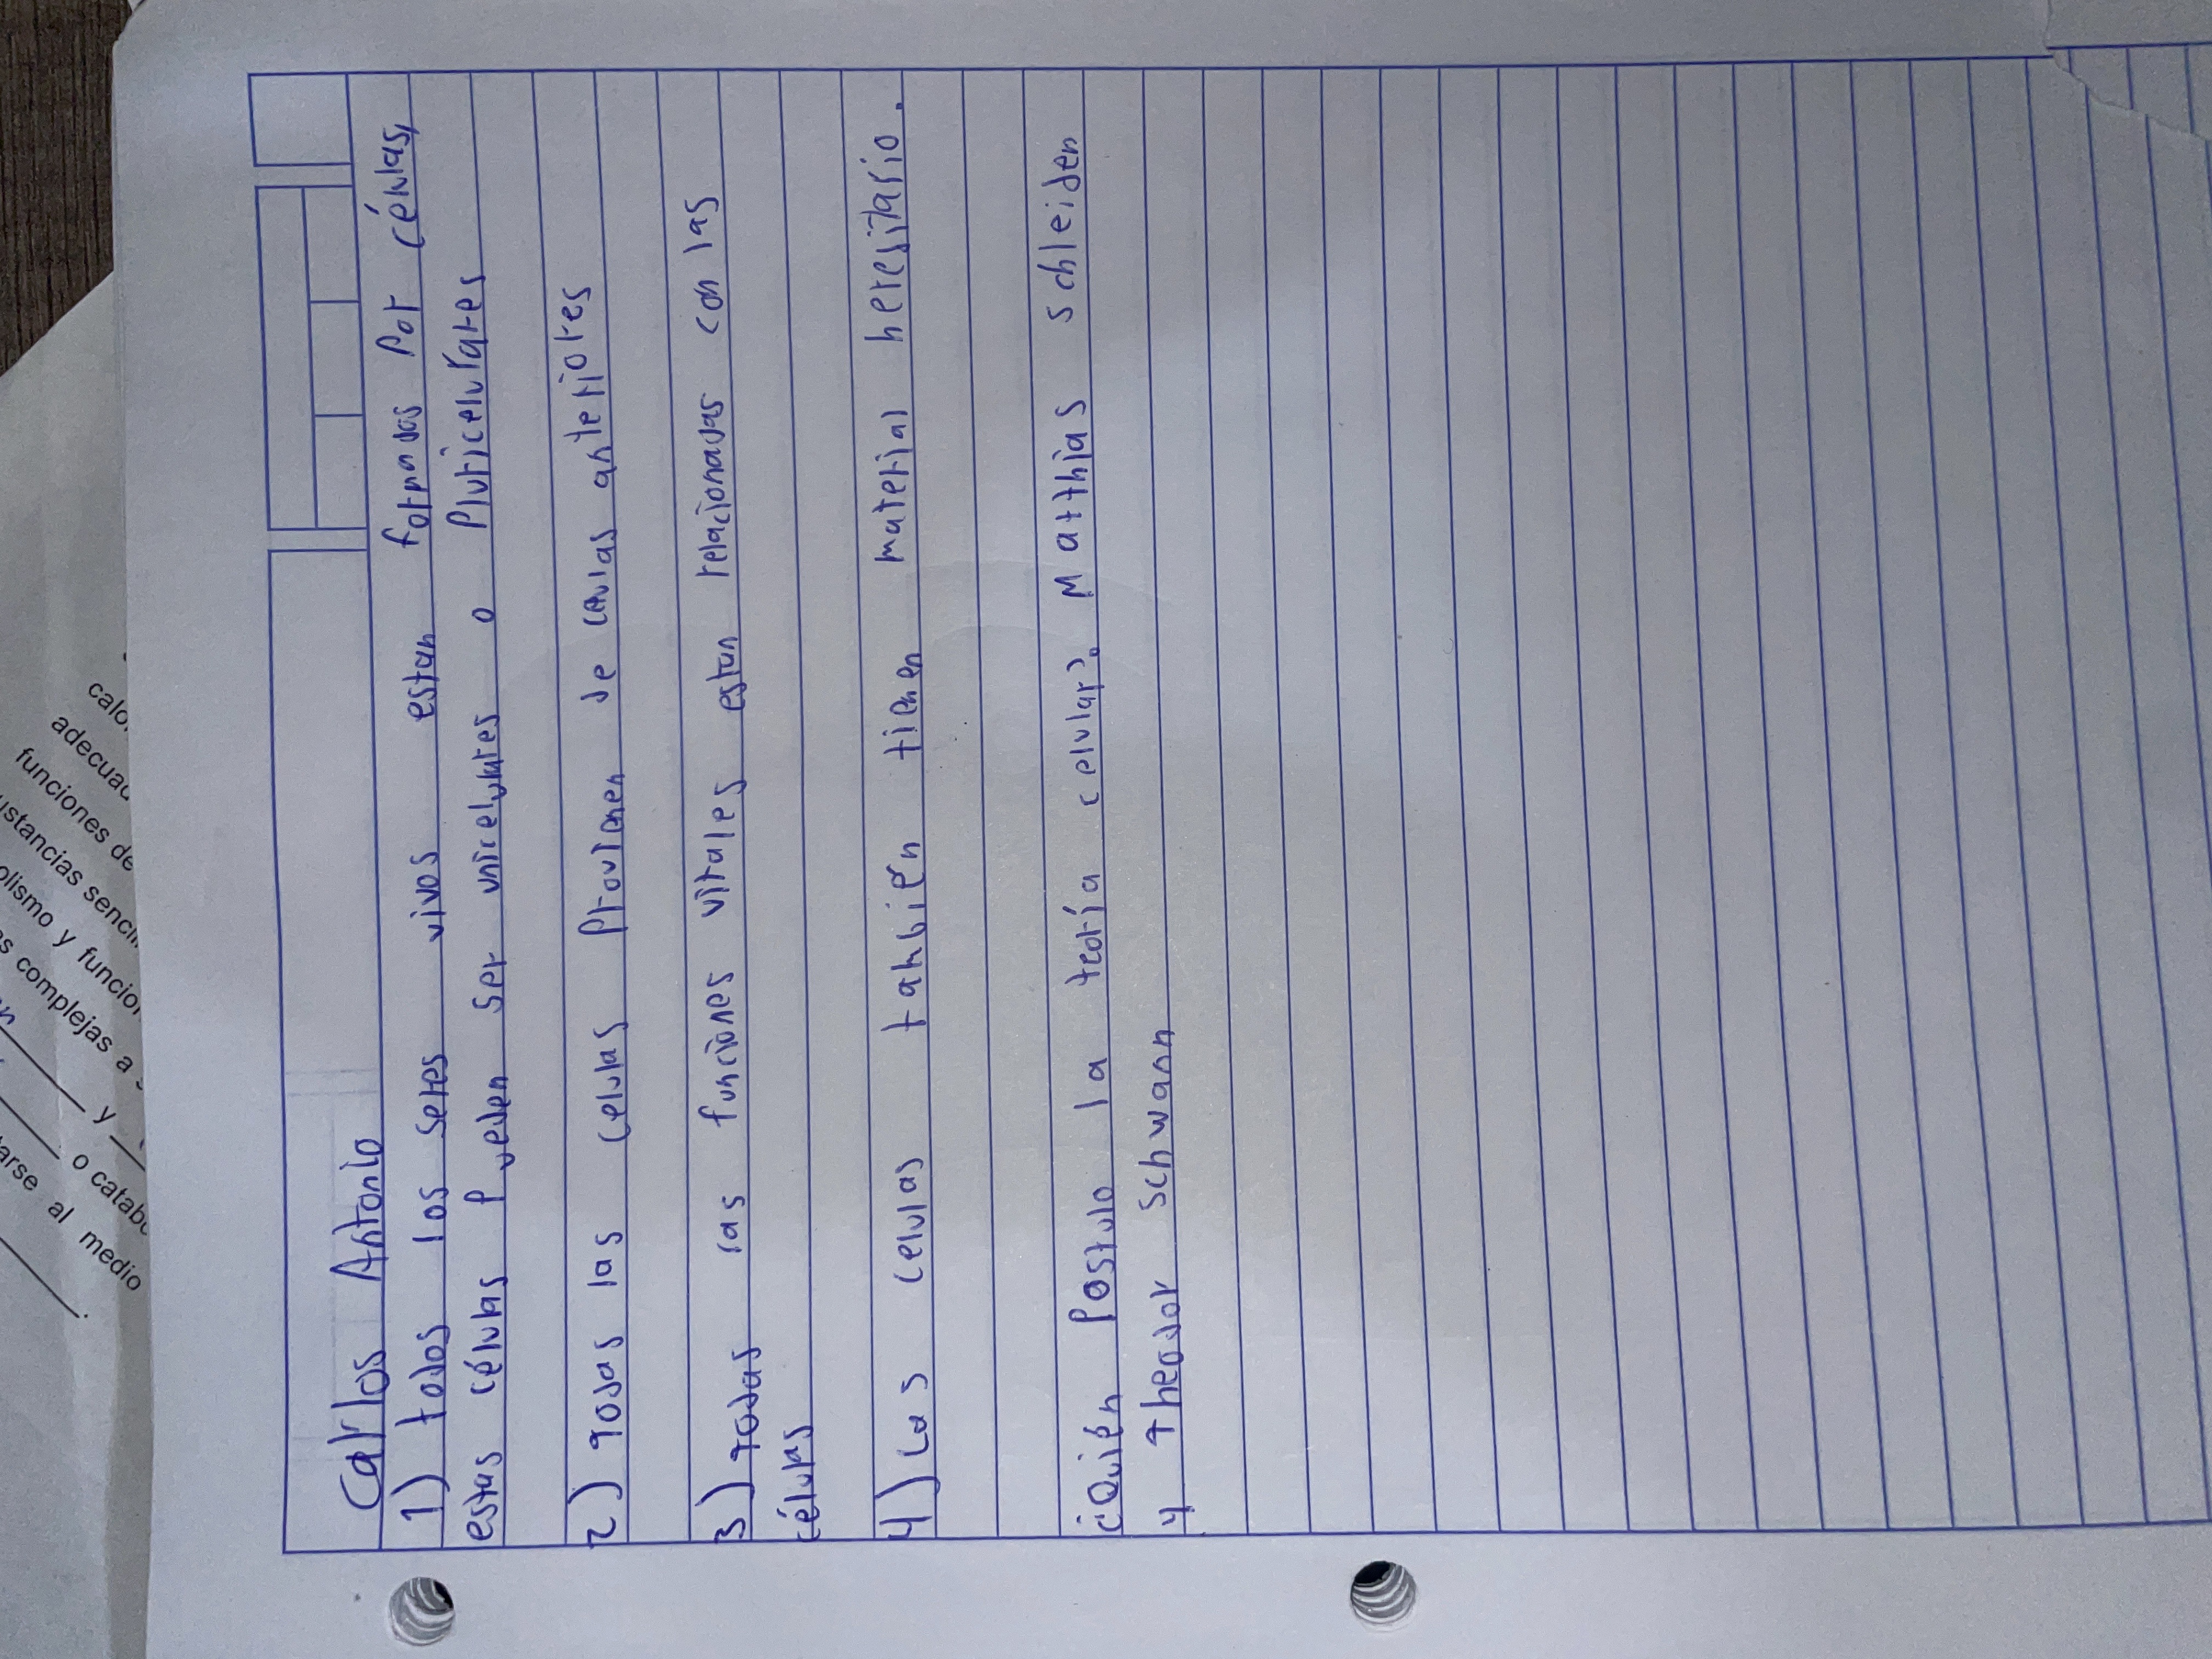 Carlos Antonio
1) todos los seres vivos estan formados por células,
estas células pueden ser unicelulares o Pluricelulares
2) Todas las celulas Provienen de celulas anteriores
3) Todas las funciones vitales estan relacionadas con las
células
4) Las celulas también tienen material heresitario.
¿Quién Postulo la teoría celular? Matthias schleiden
y Theodor schwann
calo
adecuad
funciones de
ustancias senci
olismo y funcio
s complejas a
y
o catab
arse al medio